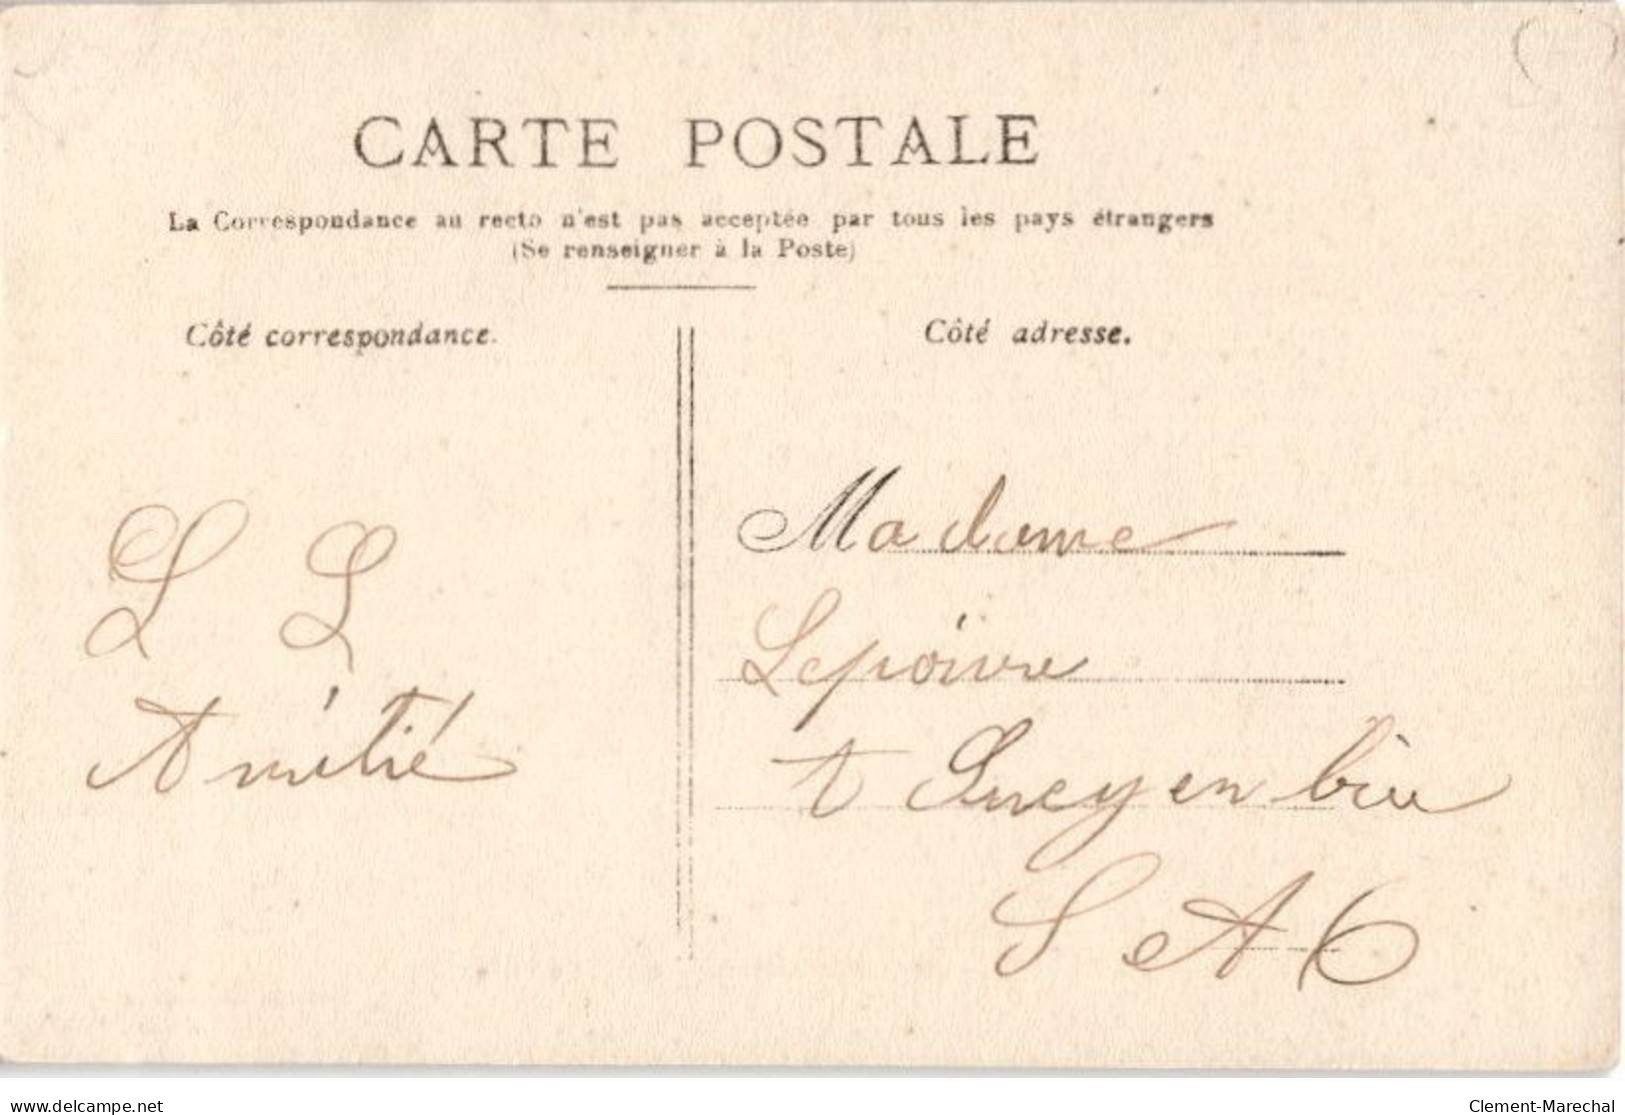 CARTE POSTALE
La Correspondance au recto n'est pas acceptée par tous les pays étrangers
(Se renseigner à la Poste)
Côté correspondance.
Côté adresse.
L L
Amitié
Madame
Lepoivre
A Sucy en brie
S
www.delcampe.net
Clement-Marechal